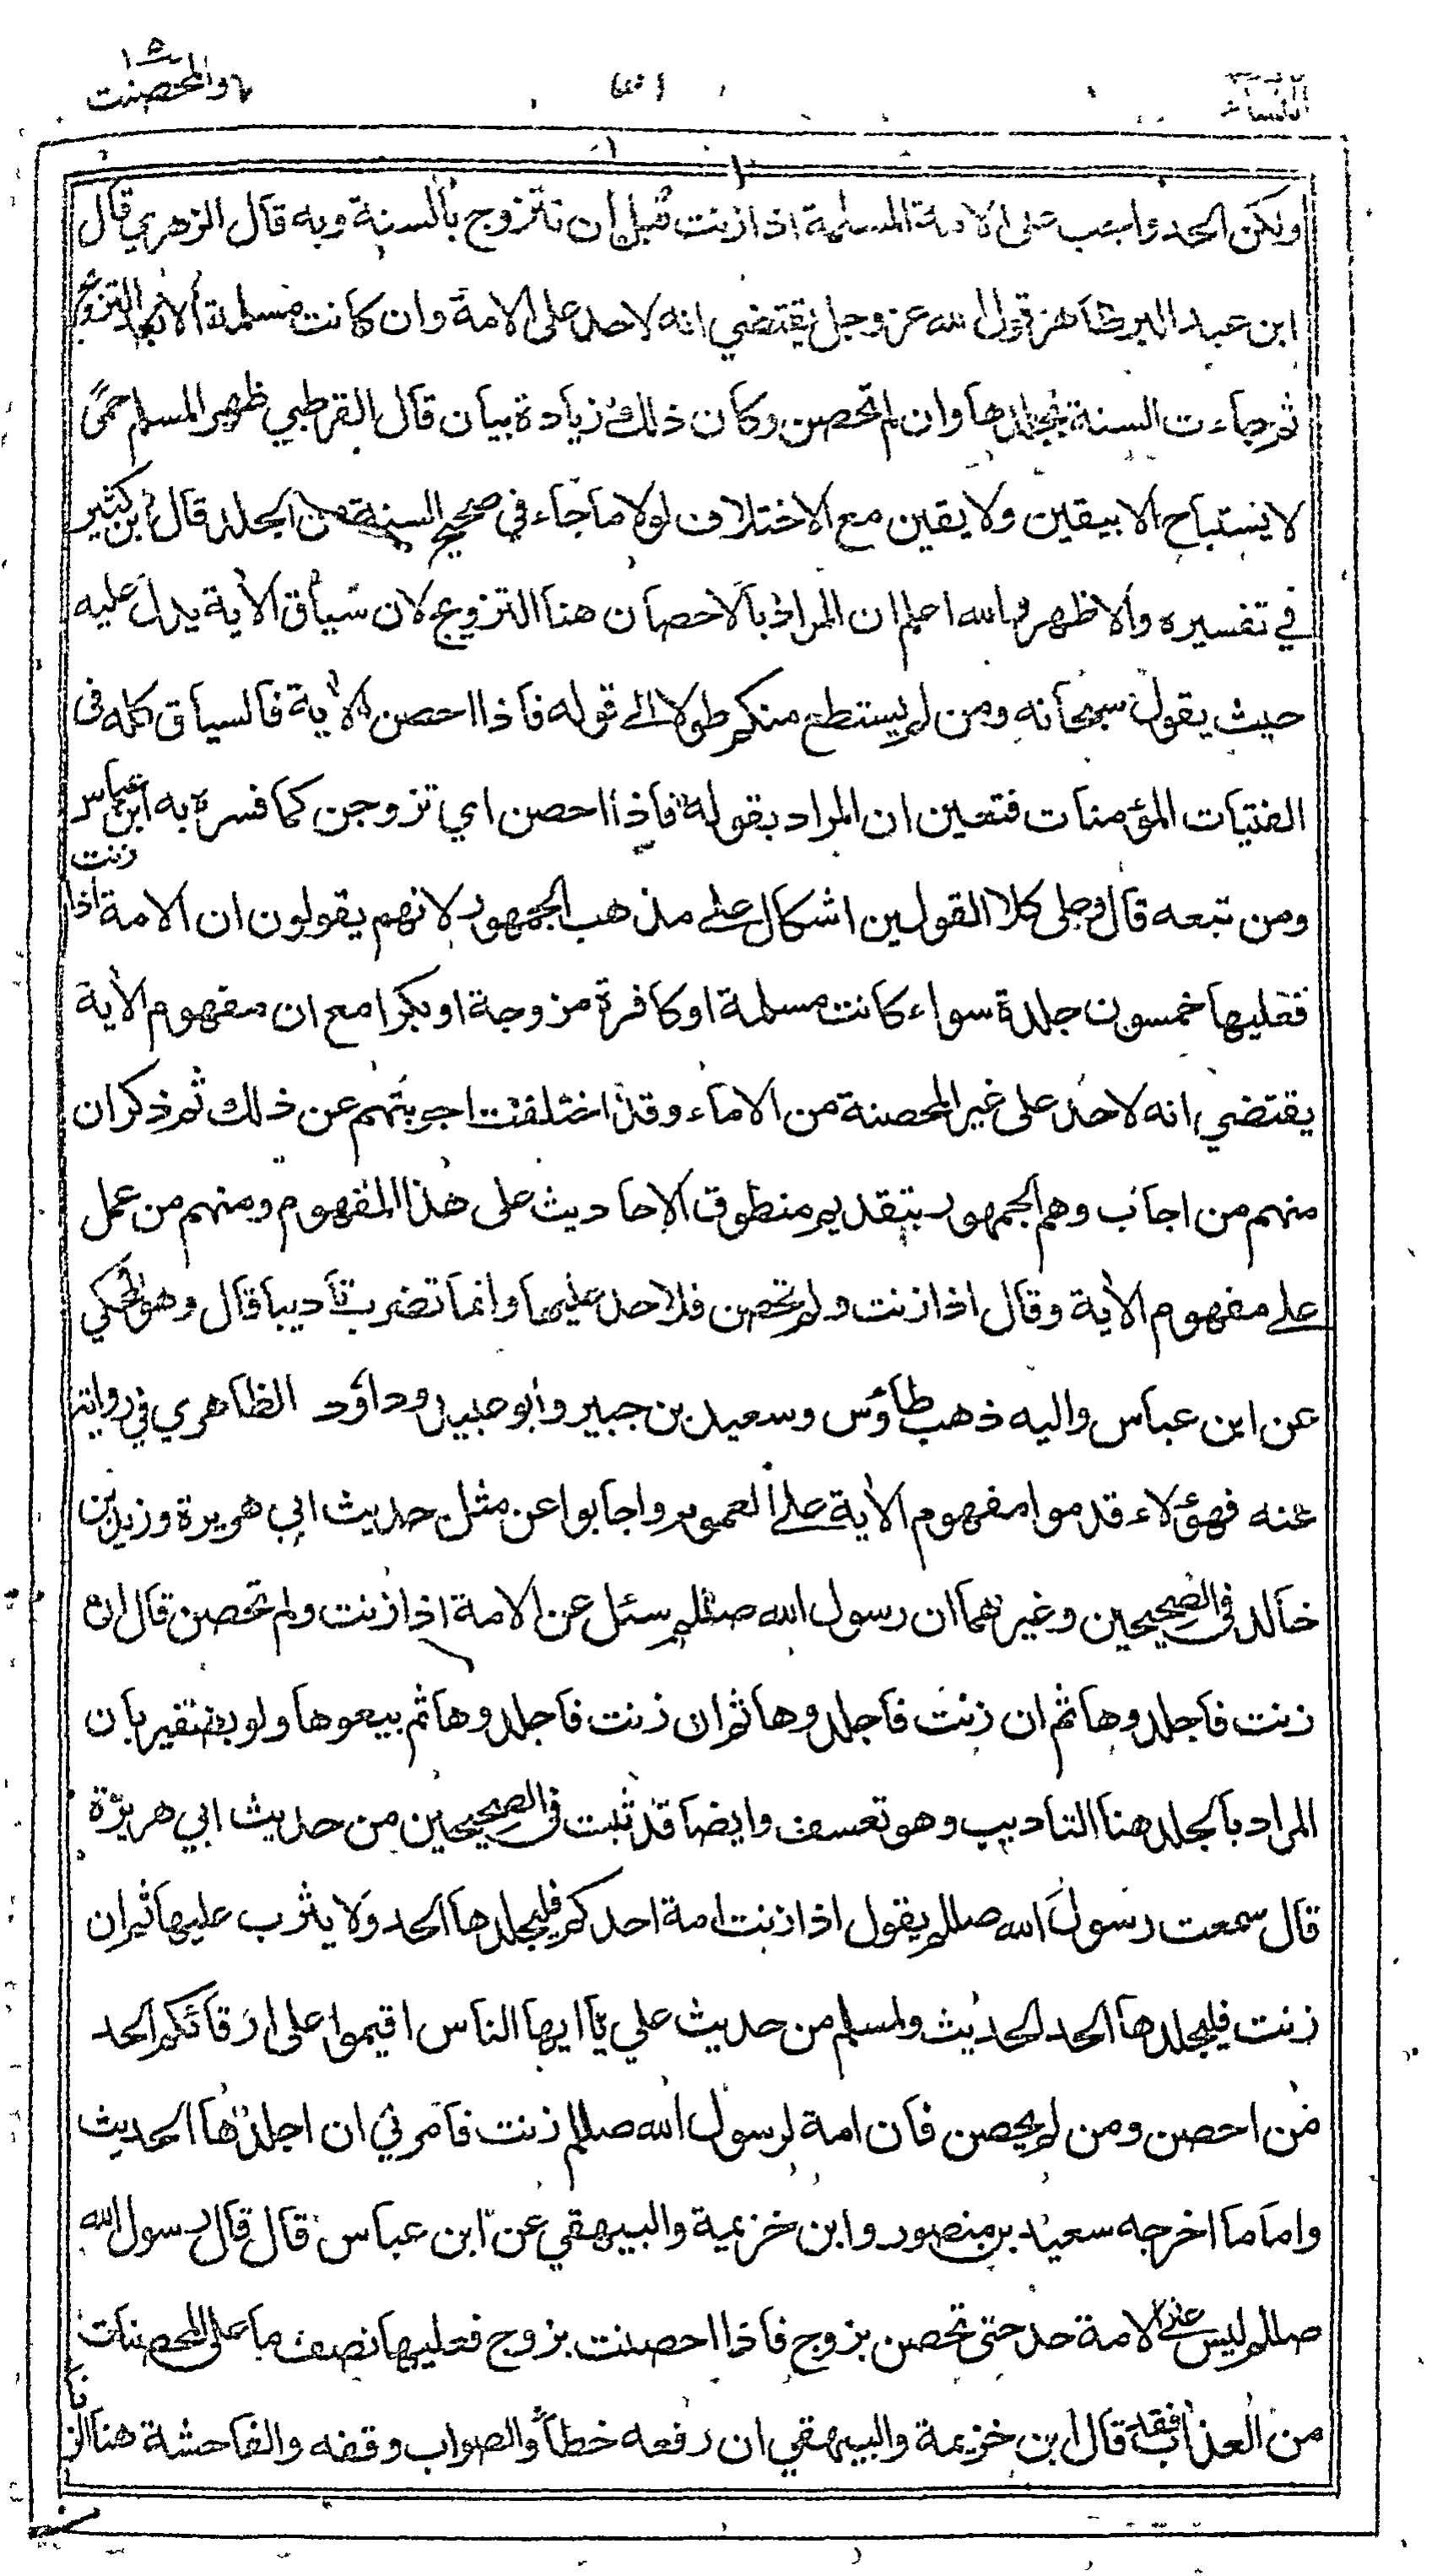 والمحصنت ٥
النساء
ولكن الحد واجب على الامة المسلمة اذا زنت قبل ان تتزوج بالسنة وبه قال الزهري قال
ابن عبد البر ظاهر قول الله عز وجل يقتضي انه لا حد على الامة وان كانت مسلمة الا بعد التزويج
ثم جاءت السنة بجلدها وان لم تحصن وكان ذلك زيادة بيان قال القرطبي ظهر المسلم حمى
لا يستباح الا بيقين ولا يقين مع الاختلاف لولا ما جاء في صحيح السنة من الجلد قال ابن كثير
في تفسيره والاظهر والله اعلم ان المراد بالاحصان هنا التزويج لان سياق الاية يدل عليه
حيث يقول سبحانه ومن لم يستطع منكم طولا الى قوله فاذا احصن الاية فالسياق كله فى
الفتيات المؤمنات فتعين ان المراد بقوله فاذا احصن اي تزوجن كما فسره به ابن عباس
ومن تبعه قال وعلى كلا القولين اشكال على مذهب الجمهور لانهم يقولون ان الامة اذا زنت
فعليها خمسون جلدة سواء كانت مسلمة او كافرة مزوجة او بكرا مع ان مفهوم الاية
يقتضي انه لا حد على غير المحصنة من الاماء وقد اختلفت اجوبتهم عن ذلك ثم ذكر ان
منهم من اجاب وهم الجمهور بتقديم منطوق الاحاديث على هذا المفهوم ومنهم من عمل
على مفهوم الاية وقال اذا زنت ولم تحصن فلا حد عليها وانما تضرب تأديبا قال وهو المحكي
عن ابن عباس واليه ذهب طاؤس وسعيد بن جبير وأبو عبيد وداؤد الظاهري في رواية
عنه فهؤلاء قدموا مفهوم الاية على العموم واجابوا عن مثل حديث ابي هريرة وزيد بن
خالد فى الصحيحين وغيرهما ان رسول الله صللم سئل عن الامة اذا زنت ولم تحصن قال ان
زنت فاجلدوها ثم ان زنت فاجلدوها ثم ان زنت فاجلدوها ثم بيعوها ولو بضفير بان
المراد بالجلد هنا التاديب وهو تعسف وايضا قد ثبت فى الصحيحين من حديث ابي هريرة
قال سمعت رسول الله صللم يقول اذا زنت امة احدكم فليجلدها الحد ولا يثرب عليها ثم ان
زنت فليجلدها الحد الحديث ولمسلم من حديث علي يا ايها الناس اقيموا على ارقائكم الحد
من احصن ومن لم يحصن فان امة لرسول الله صللم زنت فامرني ان اجلدها الحديث
واما ما اخرجه سعيد بن منصور وابن خزيمة والبيهقي عن ابن عباس قال قال رسول الله
صللم ليس على الامة حد حتى تحصن بزوج فاذا احصنت بزوج فعليها نصف ما على المحصنات
من العذاب فقد قال ابن خزيمة والبيهقي ان رفعه خطأ والصواب وقفه والفاحشة هنا الزنا